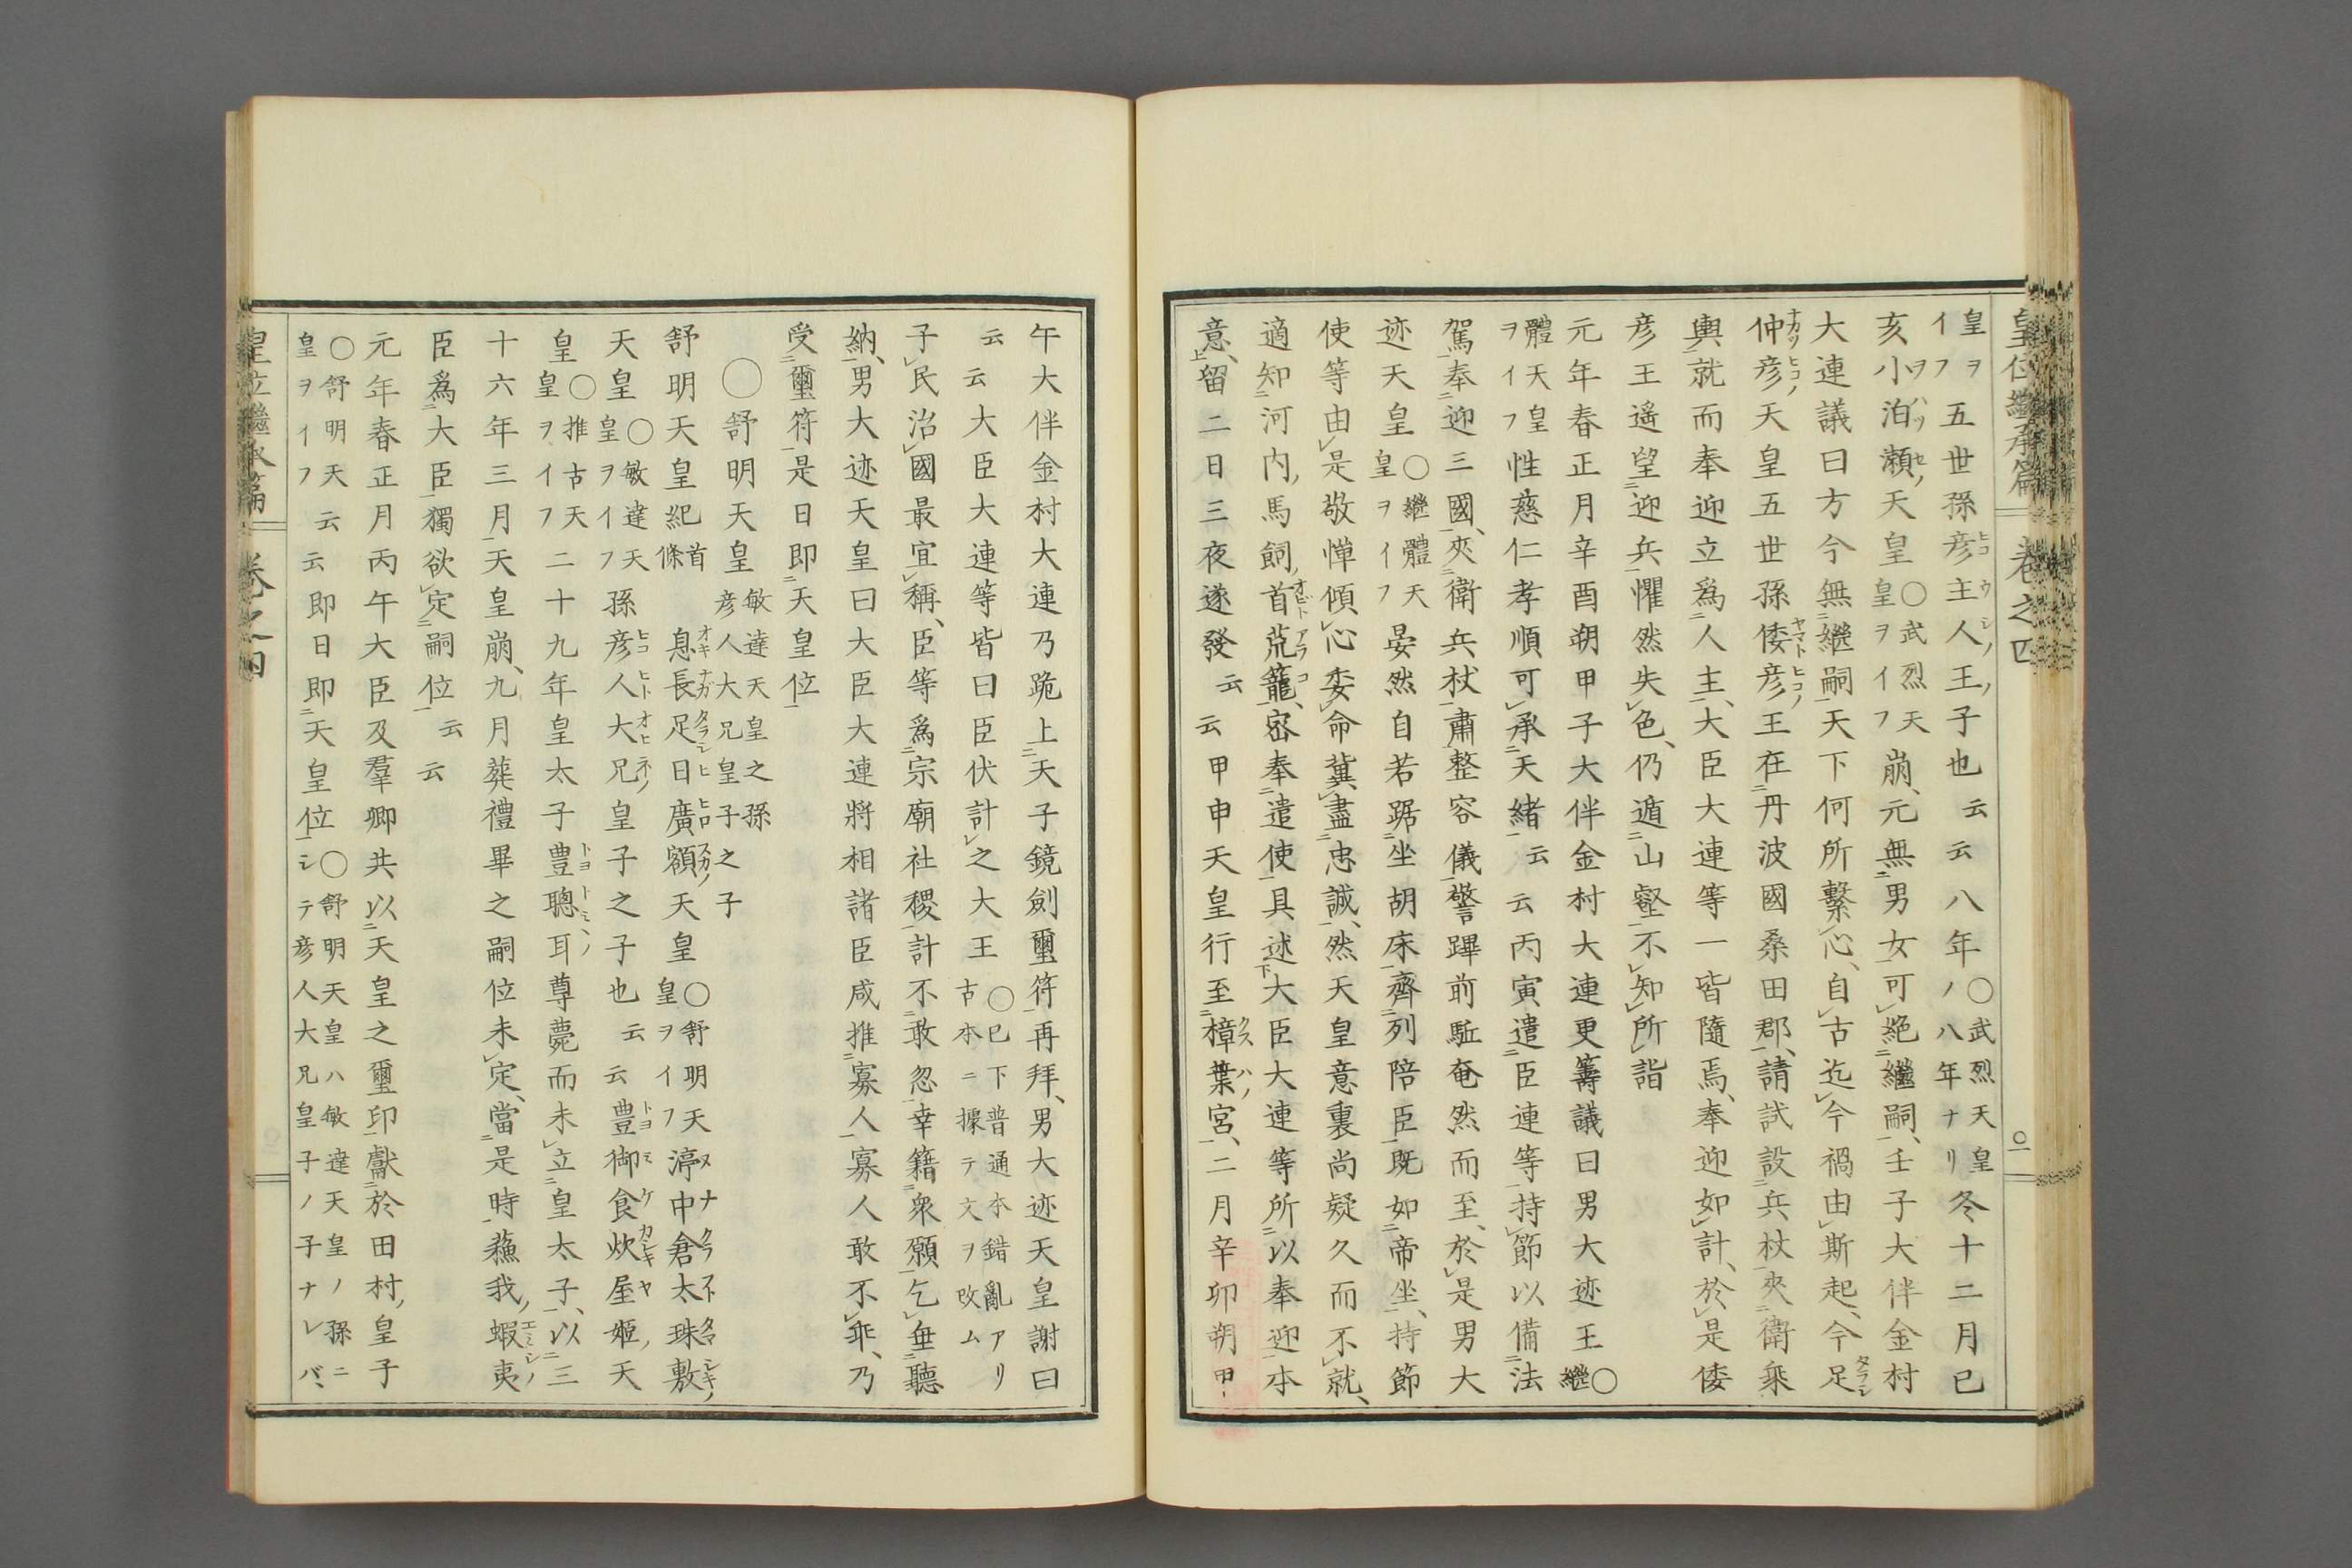 皇位繼承篇 卷之四
皇ヲイフ五世孫彦主人王ノ子也云云八年ノ〇武烈天皇八年ナリ冬十二月己
亥小泊瀬天皇〇武烈天皇ヲイフ崩、元無男女可絶繼嗣、壬子大伴金村
大連議曰方今無繼嗣天下何所繫心、自古迄今禍由斯起、今足
仲彦天皇五世孫倭彦王在丹波國桑田郡、請試設兵杖夾衛乘
輿就而奉迎立爲人主、大臣大連等一皆隨焉、奉迎如計、於是倭
彦王遥望迎兵懼然失色、仍遁山壑不知所詣
元年春正月辛酉朔甲子大伴金村大連更籌議曰男大迹王〇繼
體天皇ヲイフ性慈仁孝順可承天緒云云丙寅遣臣連等持節以備法
駕奉迎三國、夾衛兵杖肅整容儀警蹕前駈奄然而至、於是男大
迹天皇〇繼體天皇ヲイフ晏然自若踞坐胡床齊列陪臣既如帝坐、持節
使等由是敬憚傾心委命冀盡忠誠、然天皇意裏尚疑久而不就、
適知河内馬飼首荒籠、密奉遣使具述大臣大連等所以奉迎本
意、留二日三夜遂發云云甲申天皇行至樟葉宮、二月辛卯朔甲
午大伴金村大連乃跪上天子鏡劍璽符再拜、男大迹天皇謝曰
云云大臣大連等皆曰臣伏計之大王〇已下普通本錯亂アリ古本ニ據テ文ヲ改ム
子民治國最宜稱、臣等爲宗廟社稷計不敢忽幸籍衆願乞垂聽
納、男大迹天皇曰大臣大連將相諸臣咸推寡人寡人敢不乖、乃
受璽符是日即天皇位
〇舒明天皇敏達天皇之孫彦人大兄皇子之子
舒明天皇紀首條 息長足日廣額天皇〇舒明天皇ヲイフ渟中倉太珠敷
天皇〇敏達天皇ヲイフ孫彦人大兄皇子之子也云云豊御食炊屋姫天
皇〇推古天皇ヲイフ二十九年皇太子豊聰耳尊薨而未立皇太子、以三
十六年三月天皇崩、九月葬禮畢之嗣位未定、當是時蘓我蝦夷
臣爲大臣獨欲定嗣位云云
元年春正月丙午大臣及羣卿共以天皇之璽印獻於田村皇子
〇舒明天皇ヲイフ云云即日即天皇位〇舒明天皇ハ敏達天皇ノ孫ニシテ彦人大兄皇子ノ子ナレバ、
皇位繼承篇 卷之四